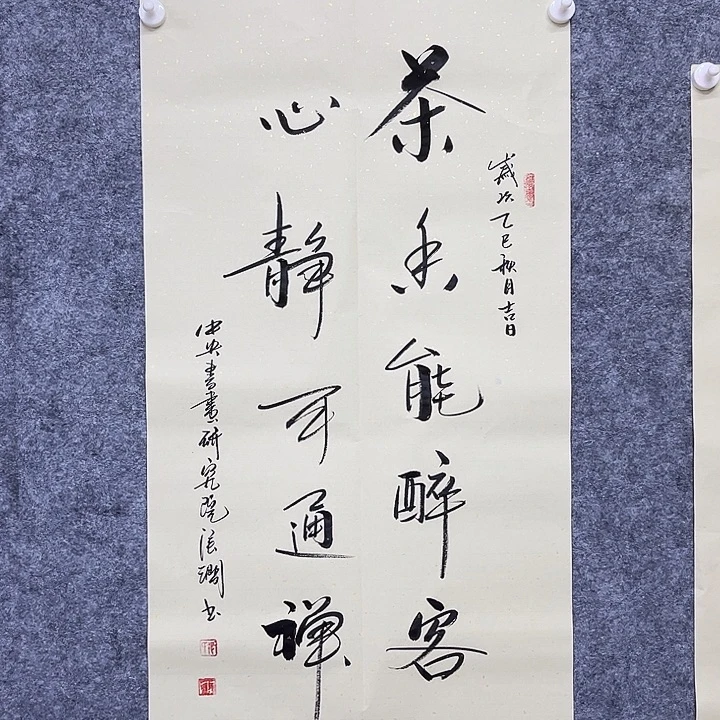 岁次乙巳秋月吉日
茶香能醉客
心静可通禅
中央书画研究院张润书